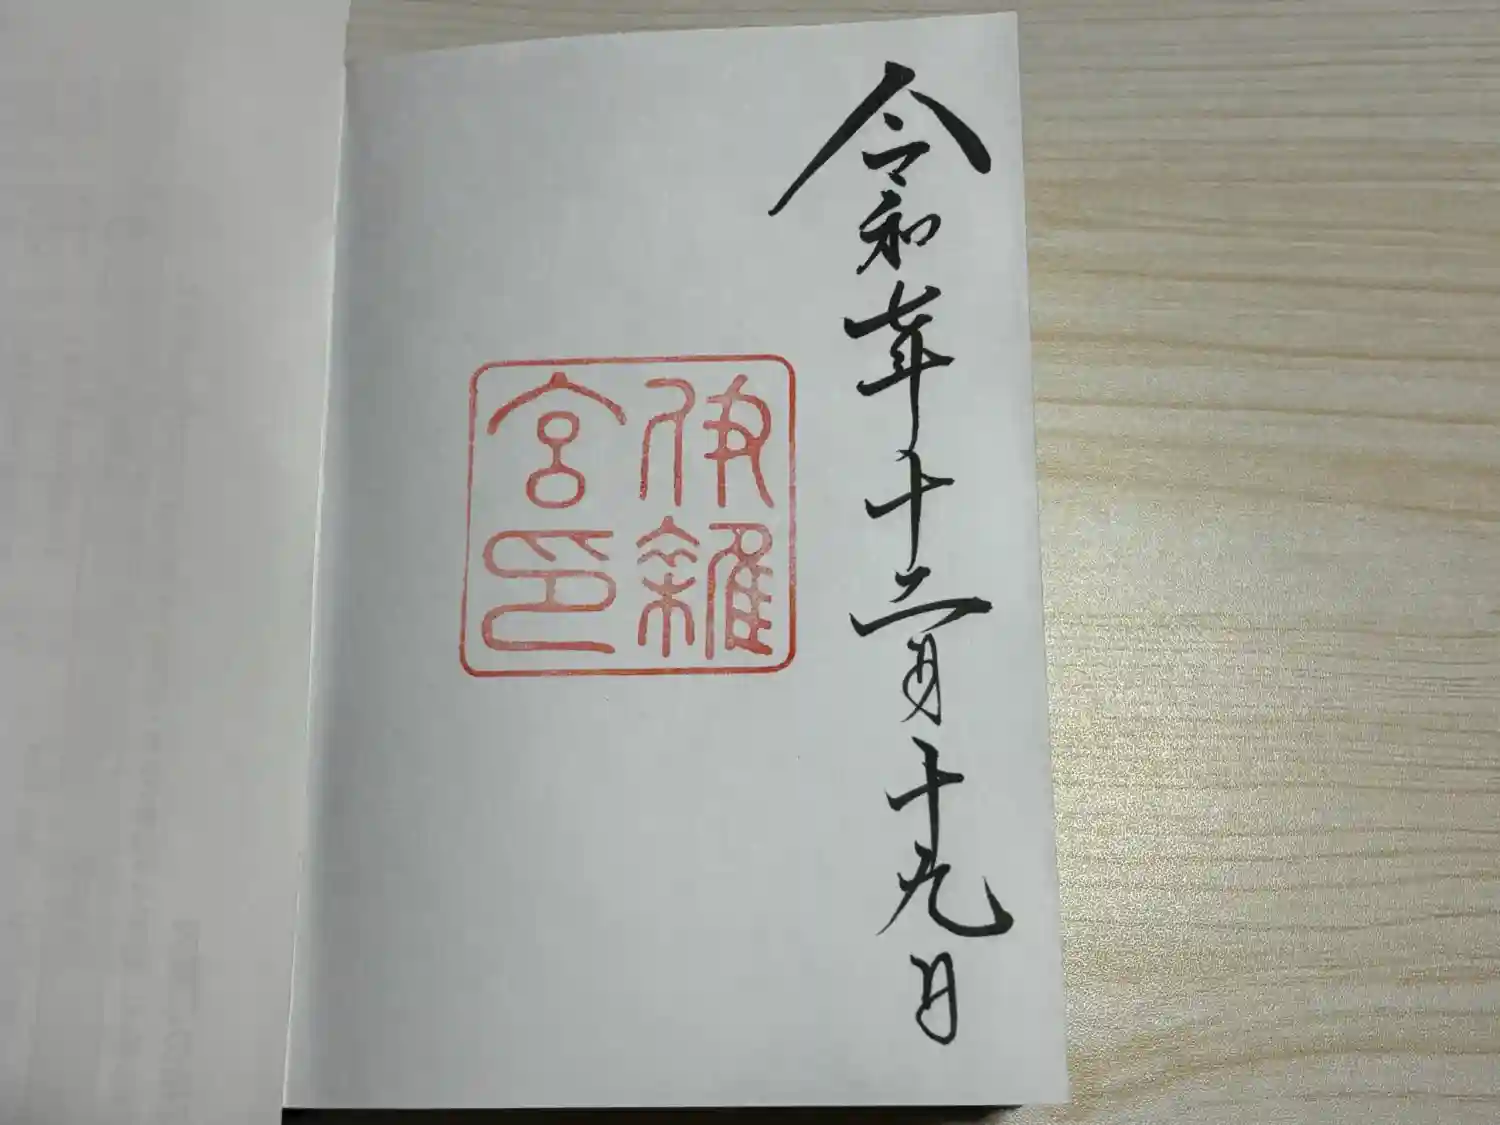 令和七年十二月十九日
伊雑
宮印